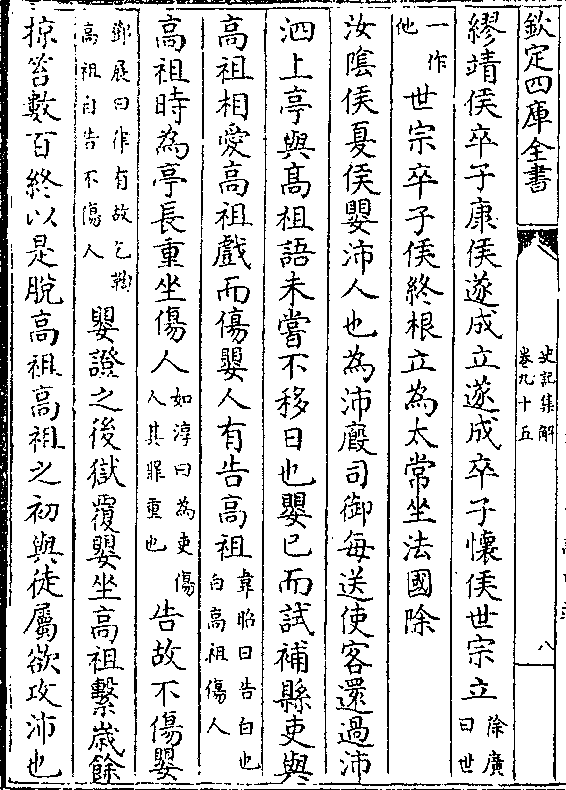 欽定四庫全書
史記集解
卷九十五
八
繆靖侯卒子康侯遂成立遂成卒子懷侯世宗立徐廣曰世
一作他世宗卒子侯終根立為太常坐法國除
汝陰侯夏侯嬰沛人也為沛廄司御每送使客還過沛
泗上亭與高祖語未嘗不移日也嬰已而試補縣吏與
高祖相愛高祖戲而傷嬰人有告高祖韋昭曰告白也白高祖傷人
高祖時為亭長重坐傷人如淳曰為吏傷人其罪重也告故不傷嬰
鄧展曰作有故乞鞫高祖自告不傷人嬰證之後獄覆嬰坐高祖繫歲餘
掠笞數百終以是脫高祖高祖之初與徒屬欲攻沛也